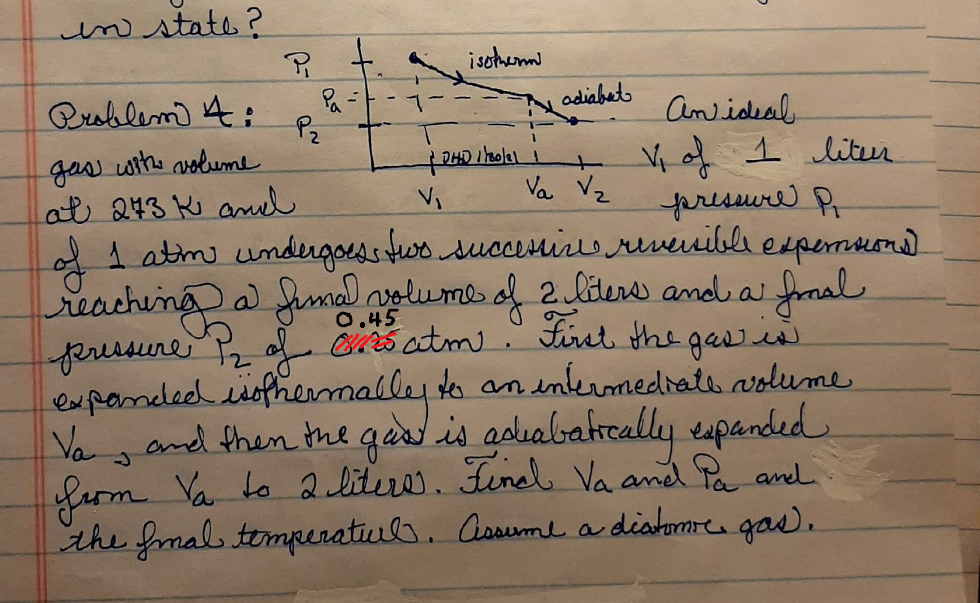 in state?
P1
isotherm
Pa
adiabat
Problem 4:
P2
An ideal
gas with volume
V1 of 1 liter
V1
Va
V2
at 273 K and
pressure P1
of 1 atm undergoes two successive reversible expansions
reaching a final volume of 2 liters and a final
0.45
pressure P2 of atm. First the gas is
expanded isothermally to an intermediate volume
Va, and then the gas is adiabatically expanded
from Va to 2 liters. Find Va and Pa and
the final temperature. Assume a diatomic gas.